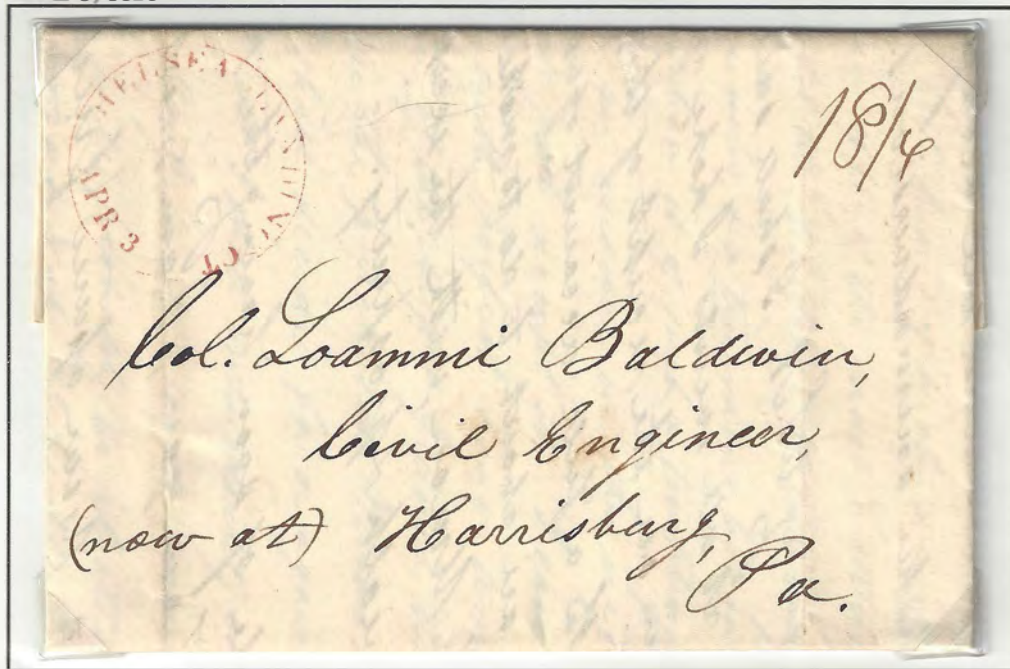 CHELSEA LANDING CT
APR 3
18/4
Col. Loammi Baldwin,
Civil Engineer,
(now at) Harrisburg,
Pa.